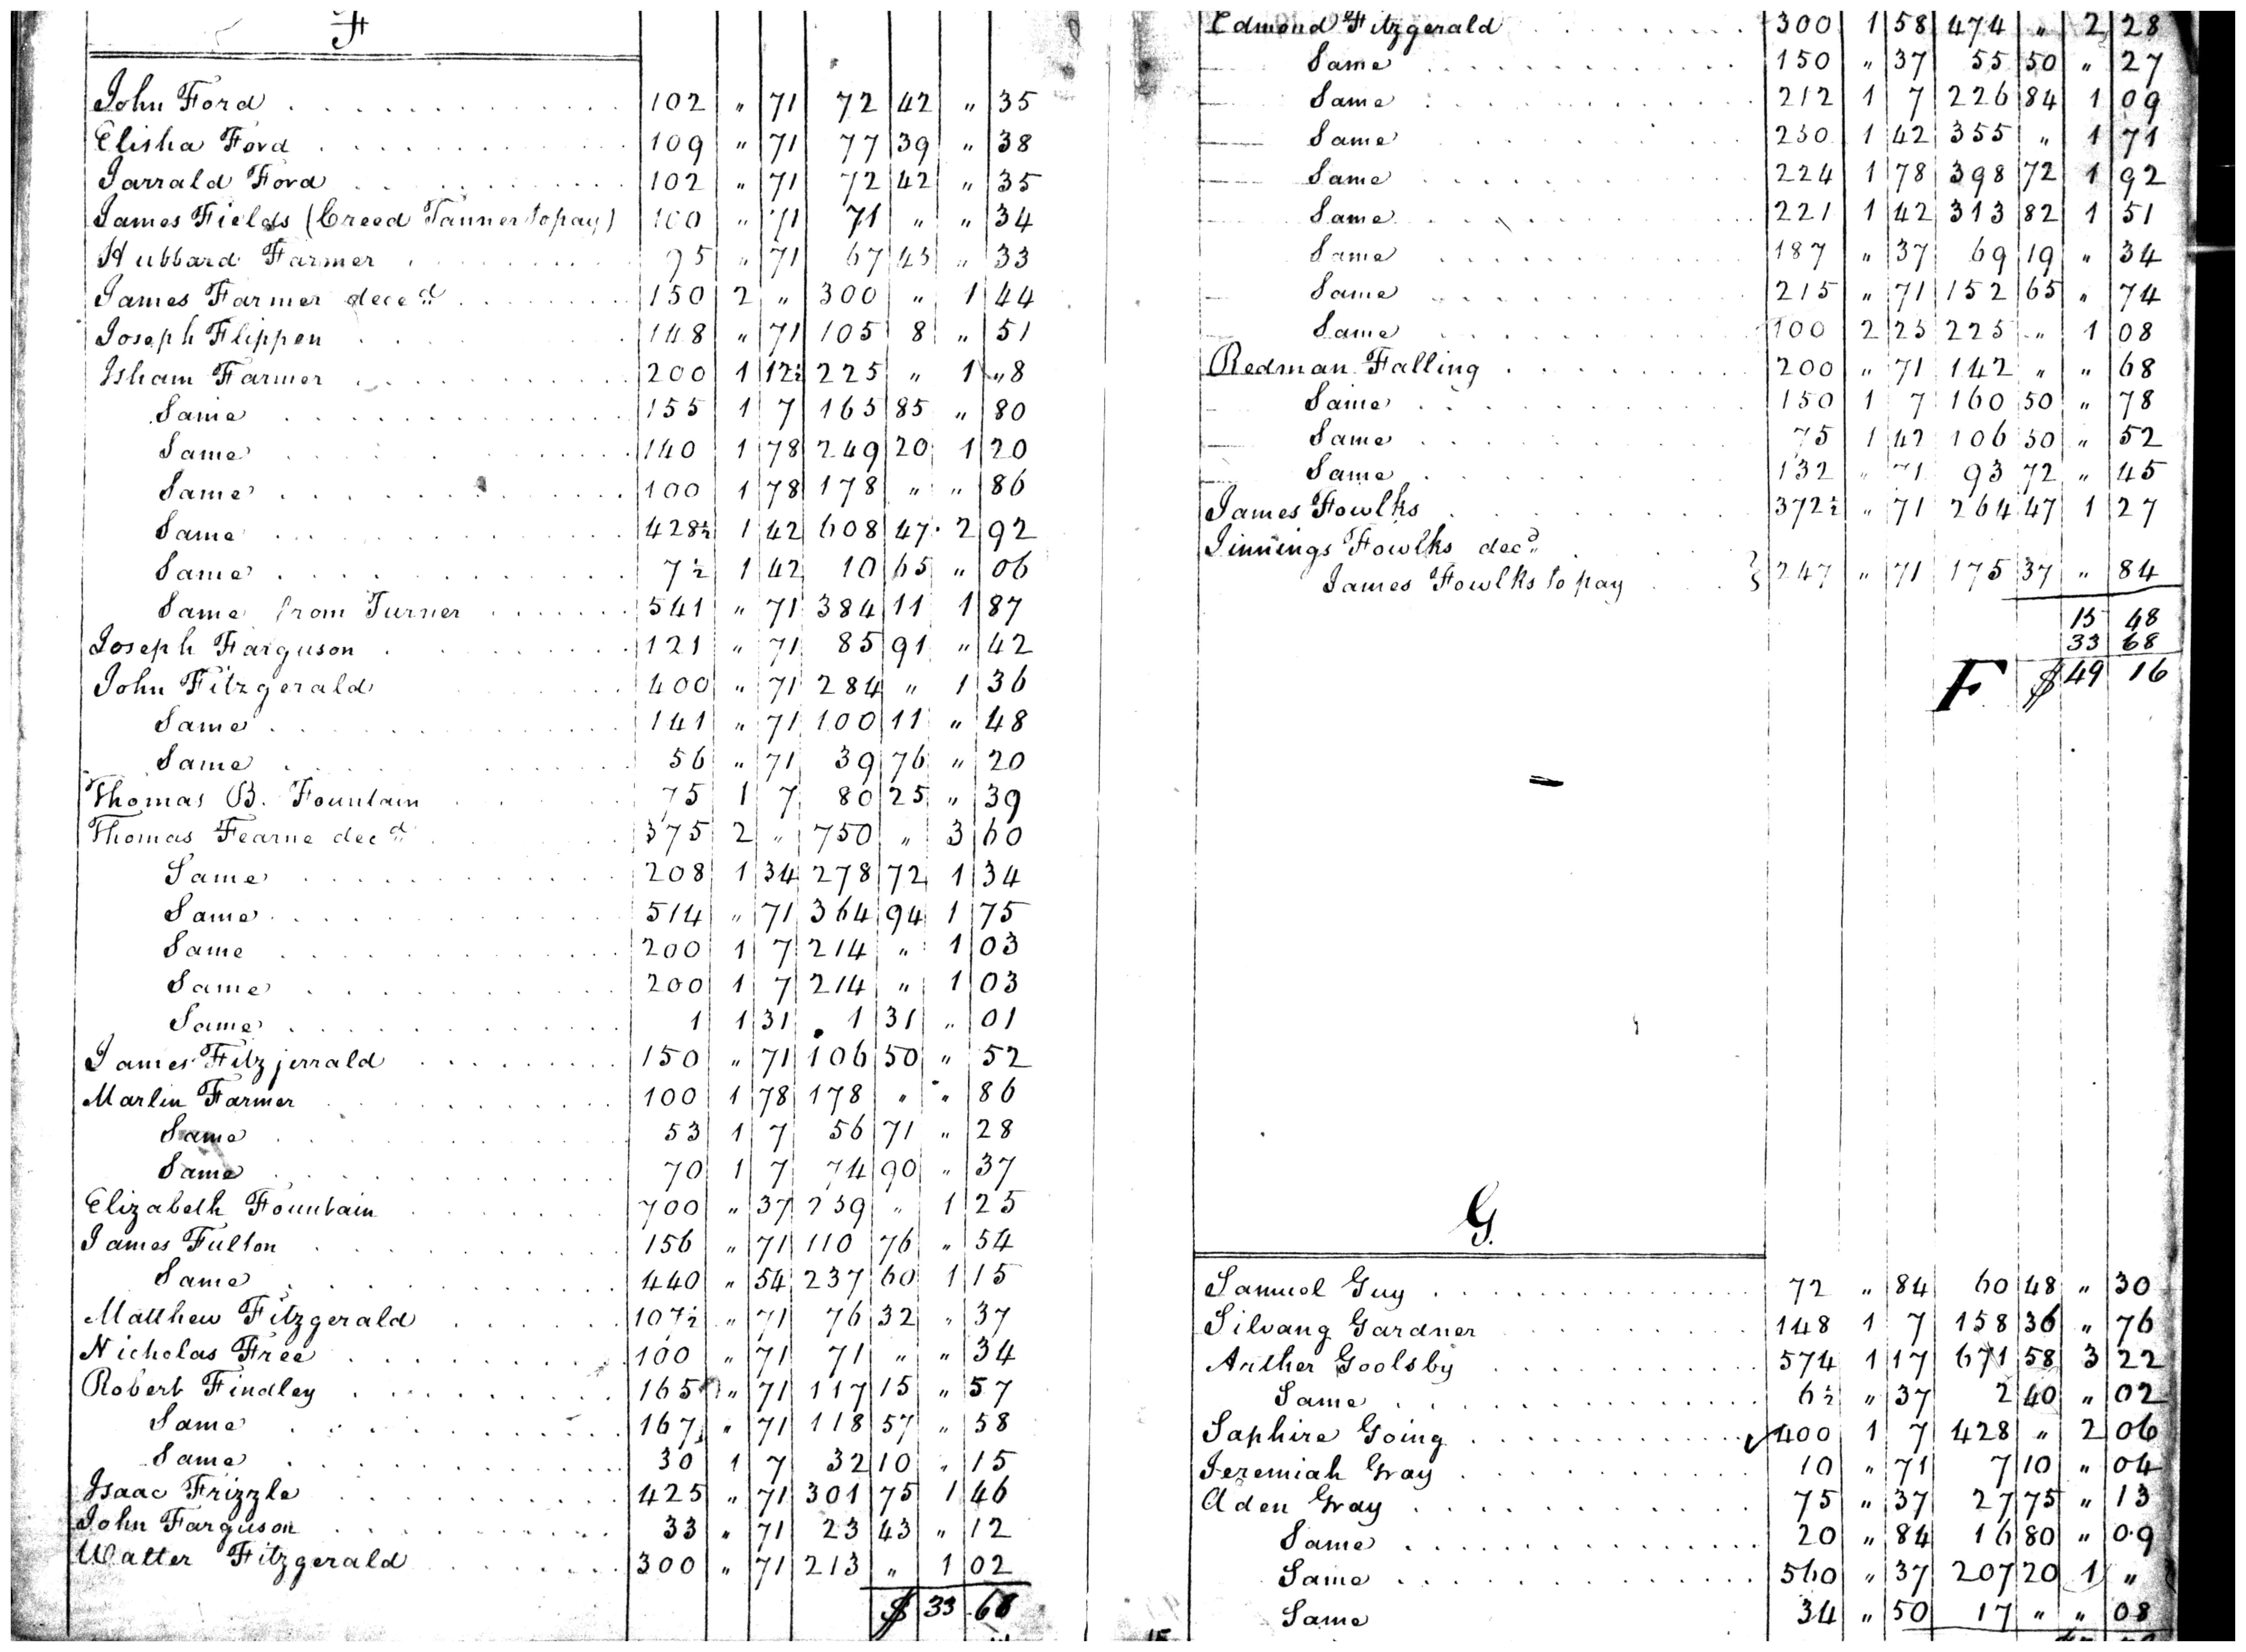 F
John Ford 102 " 71 72 42 " 35
Elisha Ford 109 " 71 77 39 " 38
Jarrald Ford 102 " 71 72 42 " 35
James Fields (Creed Tanner to pay) 100 " 71 71 " " 34
Hubbard Farmer 95 " 71 67 45 " 33
James Farmer decd 150 2 " 300 " 1 44
Joseph Flippen 148 " 71 105 8 " 51
Isham Farmer 200 1 12½ 225 " 1 "8
Same 155 1 7 165 85 " 80
Same 140 1 78 249 20 1 20
Same 100 1 78 178 " " 86
Same 428½ 1 42 608 47 2 92
Same 7½ 1 42 10 65 " 06
Same from Turner 541 " 71 384 11 1 87
Joseph Farguson 121 " 71 85 91 " 42
John Fitzgerald 400 " 71 284 " 1 36
Same 141 " 71 100 11 " 48
Same 56 " 71 39 76 " 20
Thomas B. Fountain 75 1 7 80 25 " 39
Thomas Fearne decd 375 2 " 750 " 3 60
Same 208 1 34 278 72 1 34
Same 514 " 71 364 94 1 75
Same 200 1 7 214 " 1 03
Same 200 1 7 214 " 1 03
Same 1 1 31 1 31 " 01
James Fitzjerrald 150 " 71 106 50 " 52
Marlin Farmer 100 1 78 178 " " 86
Same 53 1 7 56 71 " 28
Same 70 1 7 74 90 " 37
Elizabeth Fountain 700 " 37 259 " 1 25
James Fulton 156 " 71 110 76 " 54
Same 440 " 54 237 60 1 15
Matthew Fitzgerald 107½ " 71 76 32 " 37
Nicholas Free 100 " 71 71 " " 34
Robert Findley 165 " 71 117 15 " 57
Same 167 " 71 118 57 " 58
Same 30 1 7 32 10 " 15
Isaac Frizzle 425 " 71 301 75 1 46
John Farguson 33 " 71 23 43 " 12
Walter Fitzgerald 300 " 71 213 " 1 02
$ 33 68
Edmond Fitzgerald 300 1 58 474 " 2 28
Same 150 " 37 55 50 " 27
Same 212 1 7 226 84 1 09
Same 250 1 42 355 " 1 71
Same 224 1 78 398 72 1 92
Same 221 1 42 313 82 1 51
Same 187 " 37 69 19 " 34
Same 215 " 71 152 65 " 74
Same 100 2 25 225 " 1 08
Redman Falling 200 " 71 142 " " 68
Same 150 1 7 160 50 " 78
Same 75 1 42 106 50 " 52
Same 132 " 71 93 72 " 45
James Fowlks 372½ " 71 264 47 1 27
Jinnings Fowlks decd
James Fowlks to pay } 247 " 71 175 37 " 84
15 48
33 68
F $ 49 16
G.
Samuel Guy 72 " 84 60 48 " 30
Silvang Gardner 148 1 7 158 36 " 76
Arither Goolsby 574 1 17 671 58 3 22
Same 6½ " 37 2 40 " 02
Saphire Going 400 1 7 428 " 2 06
Jeremiah Gray 10 " 71 7 10 " 04
Aden Gray 75 " 37 27 75 " 13
Same 20 " 84 16 80 " 09
Same 560 " 37 207 20 1 "
Same 34 " 50 17 " " 08